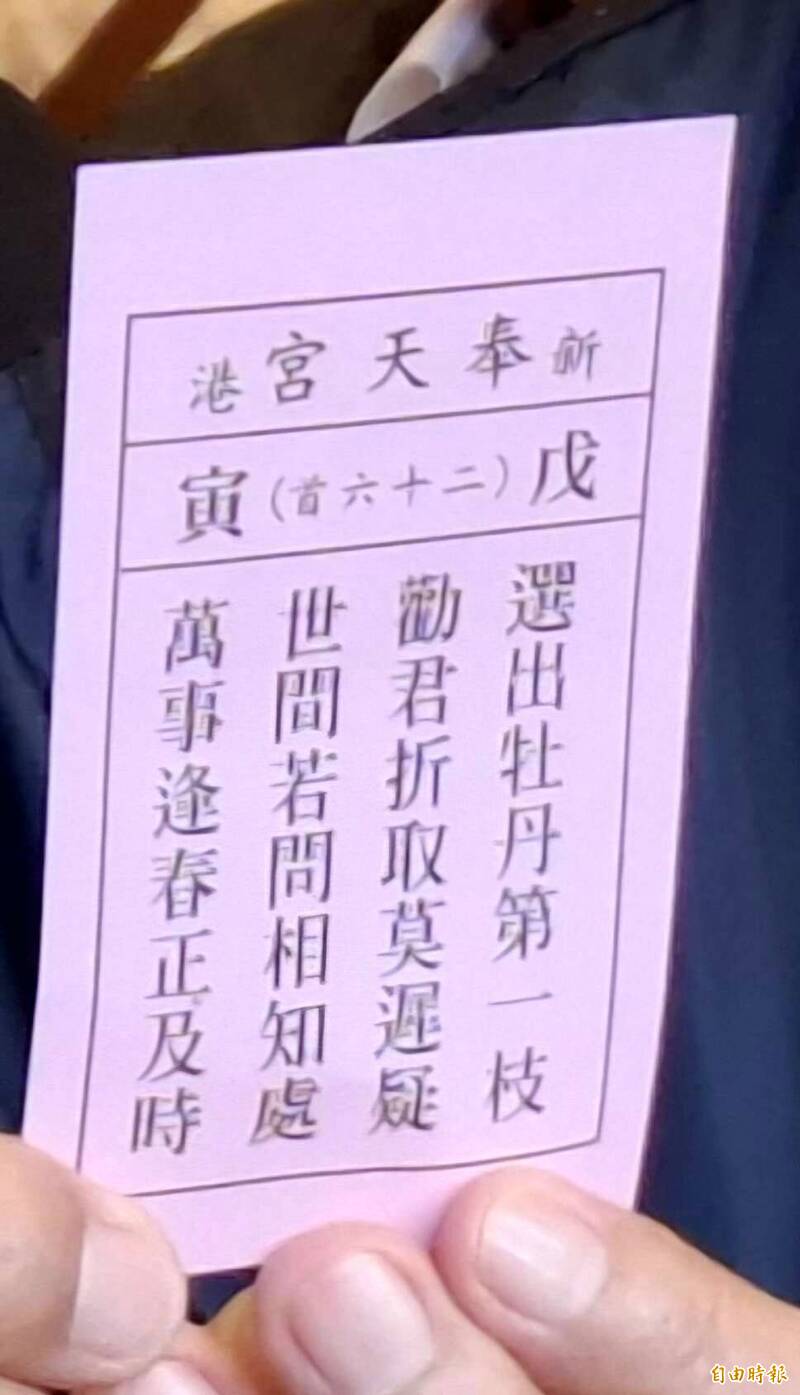 新奉天宮港
戊(二十六首)寅
選出牡丹第一枝
勸君折取莫遲疑
世間若問相知處
萬事逢春正及時
自由時報